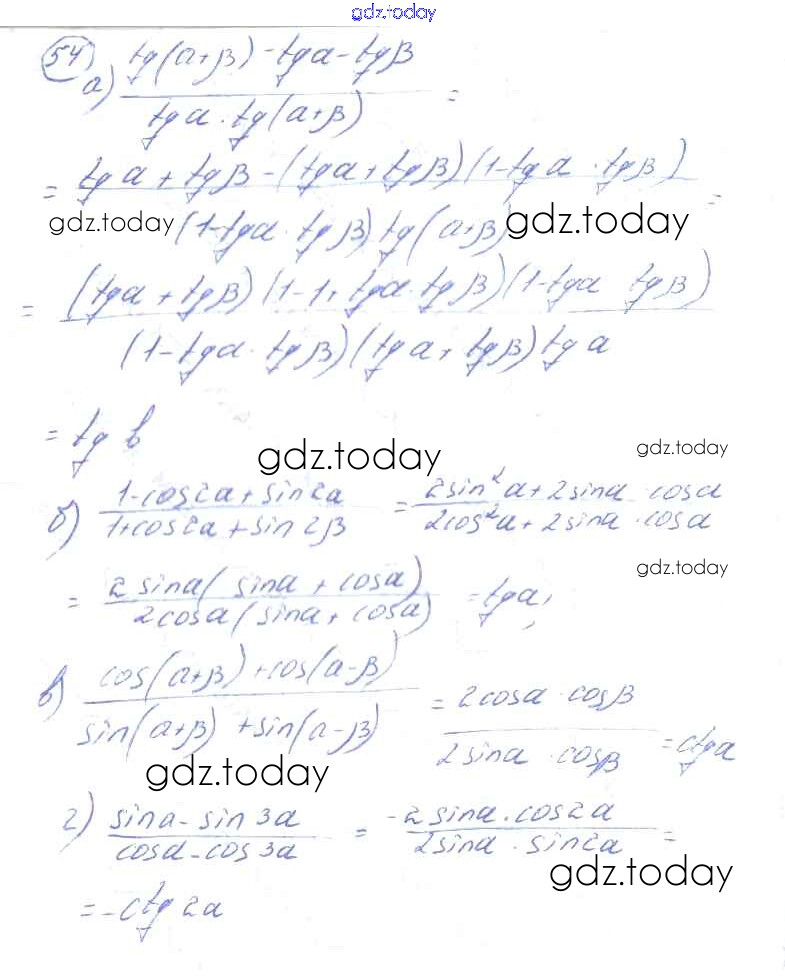 gdz.today
54
а) (tg(α+β) - tgα - tgβ) / (tgα · tg(α+β)) =
= (tgα + tgβ - (tgα + tgβ)(1 - tgα · tgβ)) / ((1 - tgα · tgβ) tg(α+β)) =
gdz.today gdz.today
= (tgα + tgβ)(1 - 1 + tgα · tgβ)(1 - tgα tgβ) / (1 - tgα · tgβ)(tgα + tgβ) tgα
= tg b
gdz.today gdz.today
б) (1 - cos2α + sin2α) / (1 + cos2α + sin2β) = (2sin²α + 2sinα · cosα) / (2cos²α + 2sinα · cosα)
gdz.today
= 2sinα(sinα + cosα) / 2cosα(sinα + cosα) = tgα;
в) (cos(α+β) + cos(α-β)) / (sin(α+β) + sin(α-β)) = 2cosα · cosβ / 2sinα · cosβ = ctgα
gdz.today
г) (sinα - sin3α) / (cosα - cos3α) = -2sinα · cos2α / 2sinα · sin2α =
gdz.today
= -ctg 2α